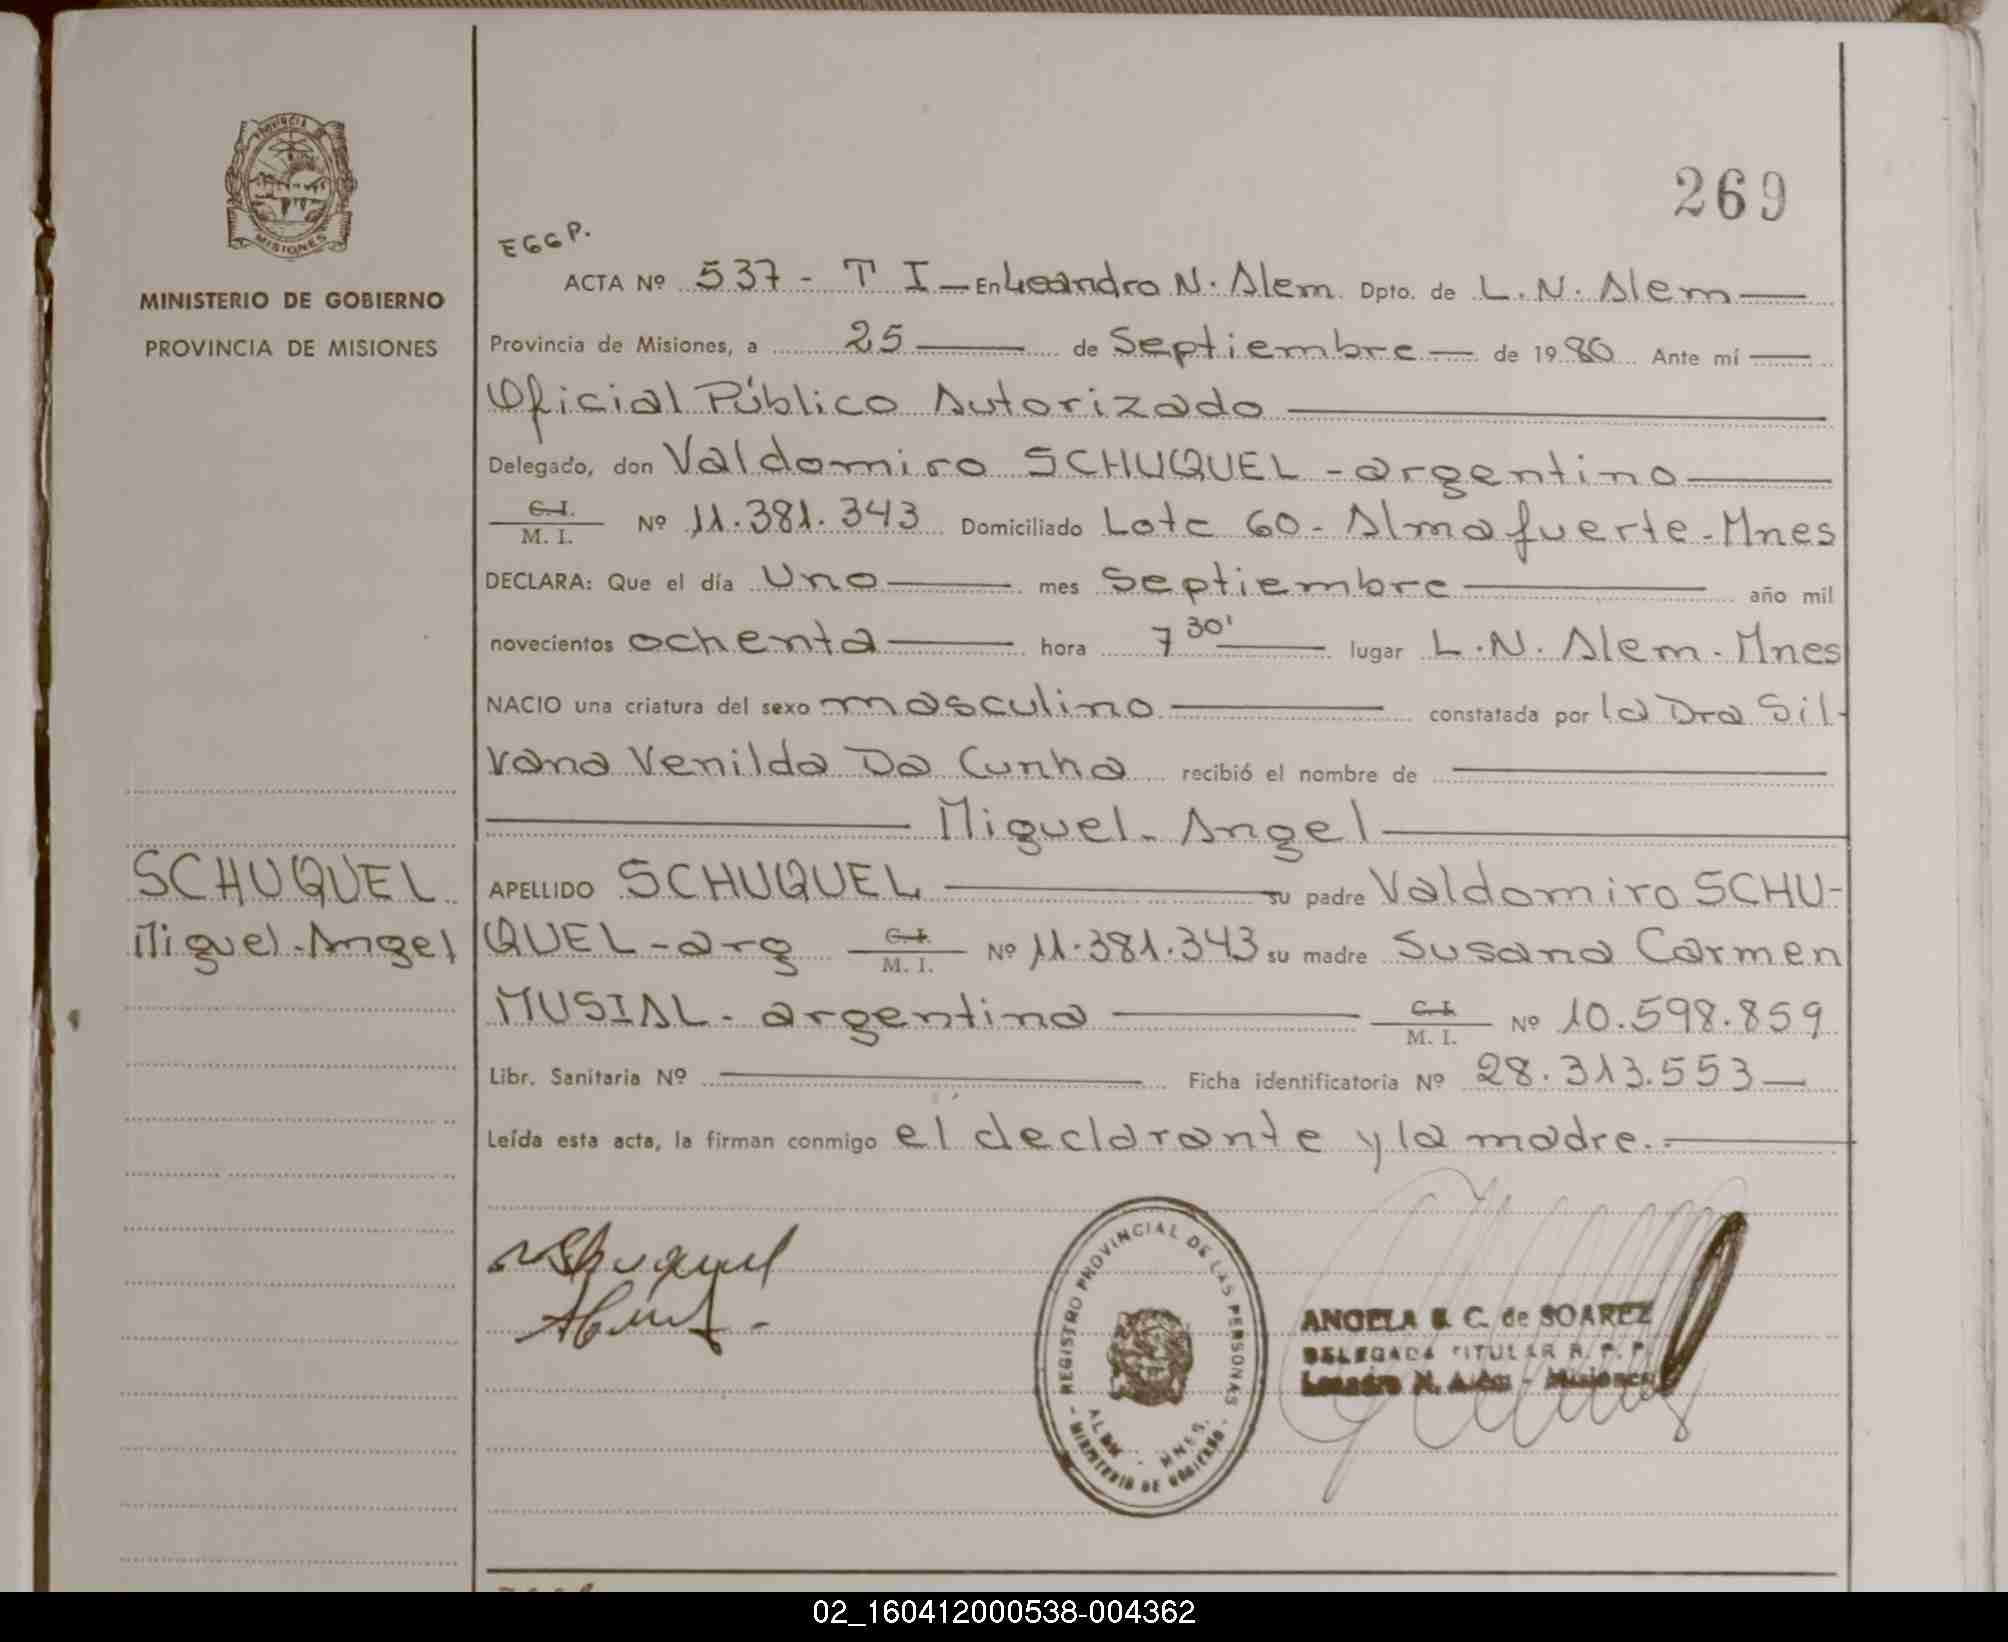 PROVINCIA
MISIONES
MINISTERIO DE GOBIERNO
PROVINCIA DE MISIONES
SCHUQUEL
Miguel-Angel
269
EGGP.
ACTA Nº 537 - T I — En Leandro N. Alem Dpto. de L. N. Alem —
Provincia de Misiones, a 25 — de Septiembre — de 1980 Ante mí —
Oficial Público Autorizado —
Delegado, don Valdomiro SCHUQUEL - argentino —
C.I. / M. I. Nº 11.381.343 Domiciliado Lote 60 - Almafuerte - Mnes
DECLARA: Que el día Uno — mes Septiembre — año mil
novecientos ochenta — hora 7 30' — lugar L. N. Alem - Mnes
NACIO una criatura del sexo masculino — constatada por la Dra Sil-
vana Venilda Da Cunha recibió el nombre de —
— Miguel - Angel —
APELLIDO SCHUQUEL — su padre Valdomiro SCHU-
QUEL - arg C.I. / M. I. Nº 11.381.343 su madre Susana Carmen
MUSIAL - argentina — C.I. / M. I. Nº 10.598.859
Libr. Sanitaria Nº — Ficha identificatoria Nº 28.313.553 —
Leída esta acta, la firman conmigo el declarante y la madre. —
REGISTRO PROVINCIAL DE LAS PERSONAS
ALEM - MNES.
MINISTERIO DE GOBIERNO
ANGELA C. de SOAREZ
DELEGADA TITULAR R. P. P.
Leandro N. Alem - Misiones
02_160412000538-004362